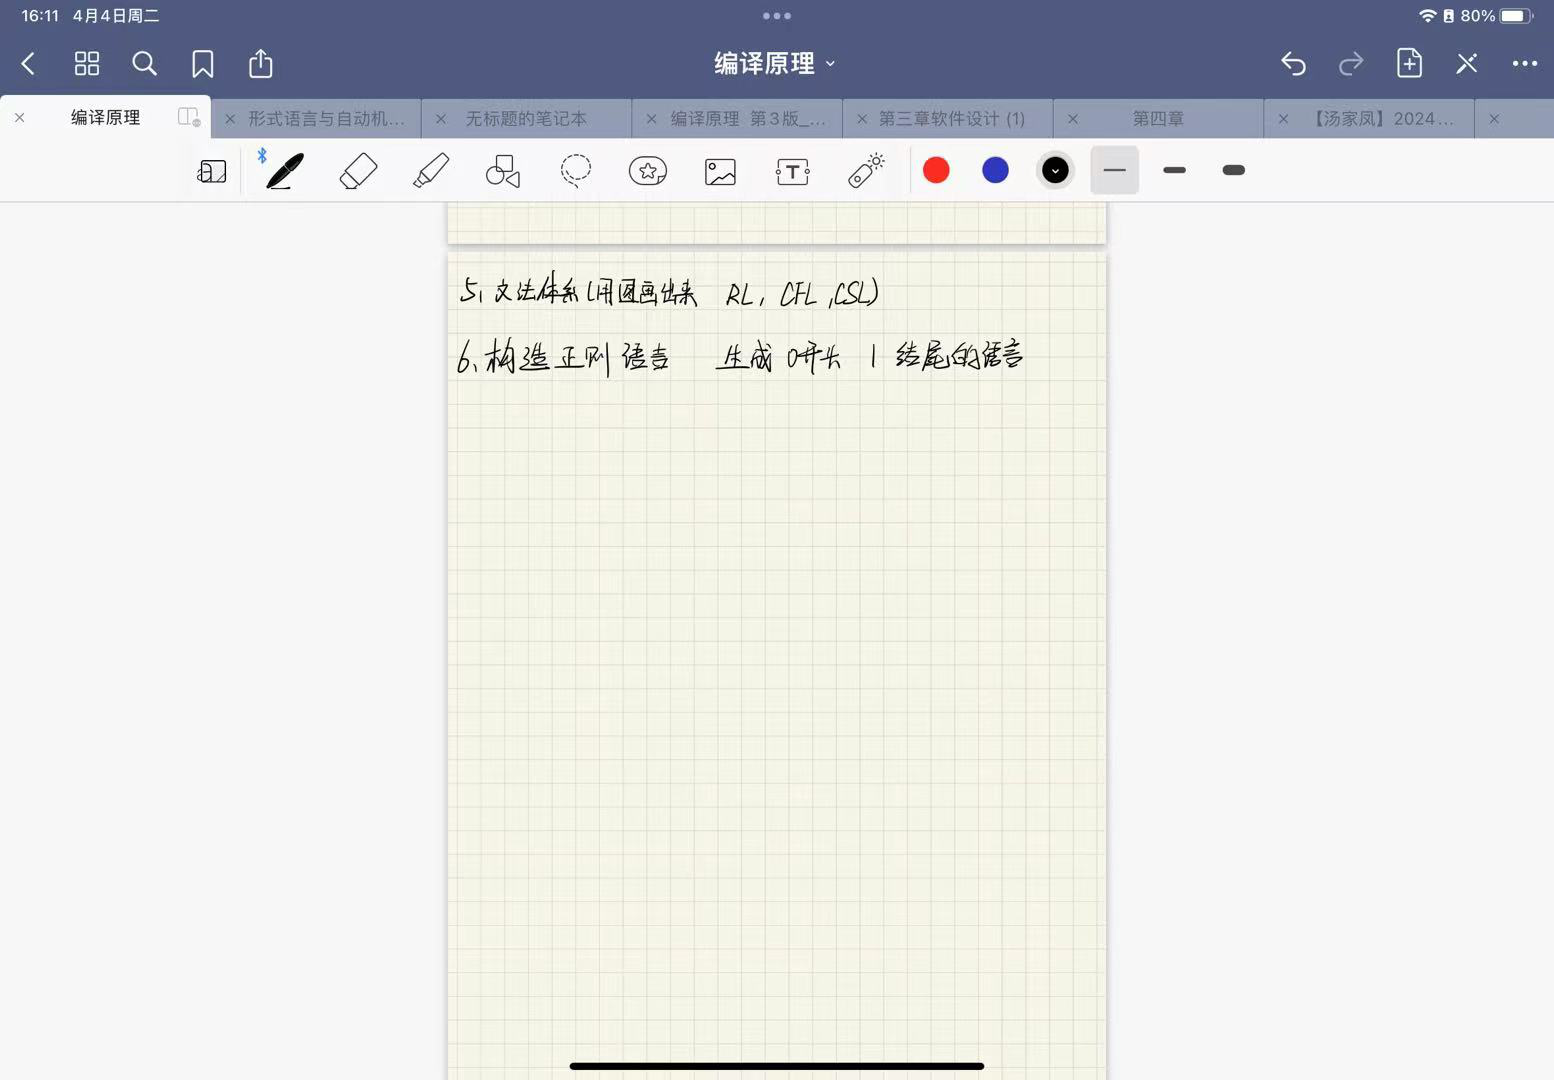 16:11 4月4日周二 80%
编译原理
编译原理 形式语言与自动机... 无标题的笔记本 编译原理 第3版_... 第三章软件设计 (1) 第四章 【汤家凤】2024...
T
5、文法体系(用图画出来 RL, CFL, CSL)
6、构造正则语言 生成0开头 1结尾的语言